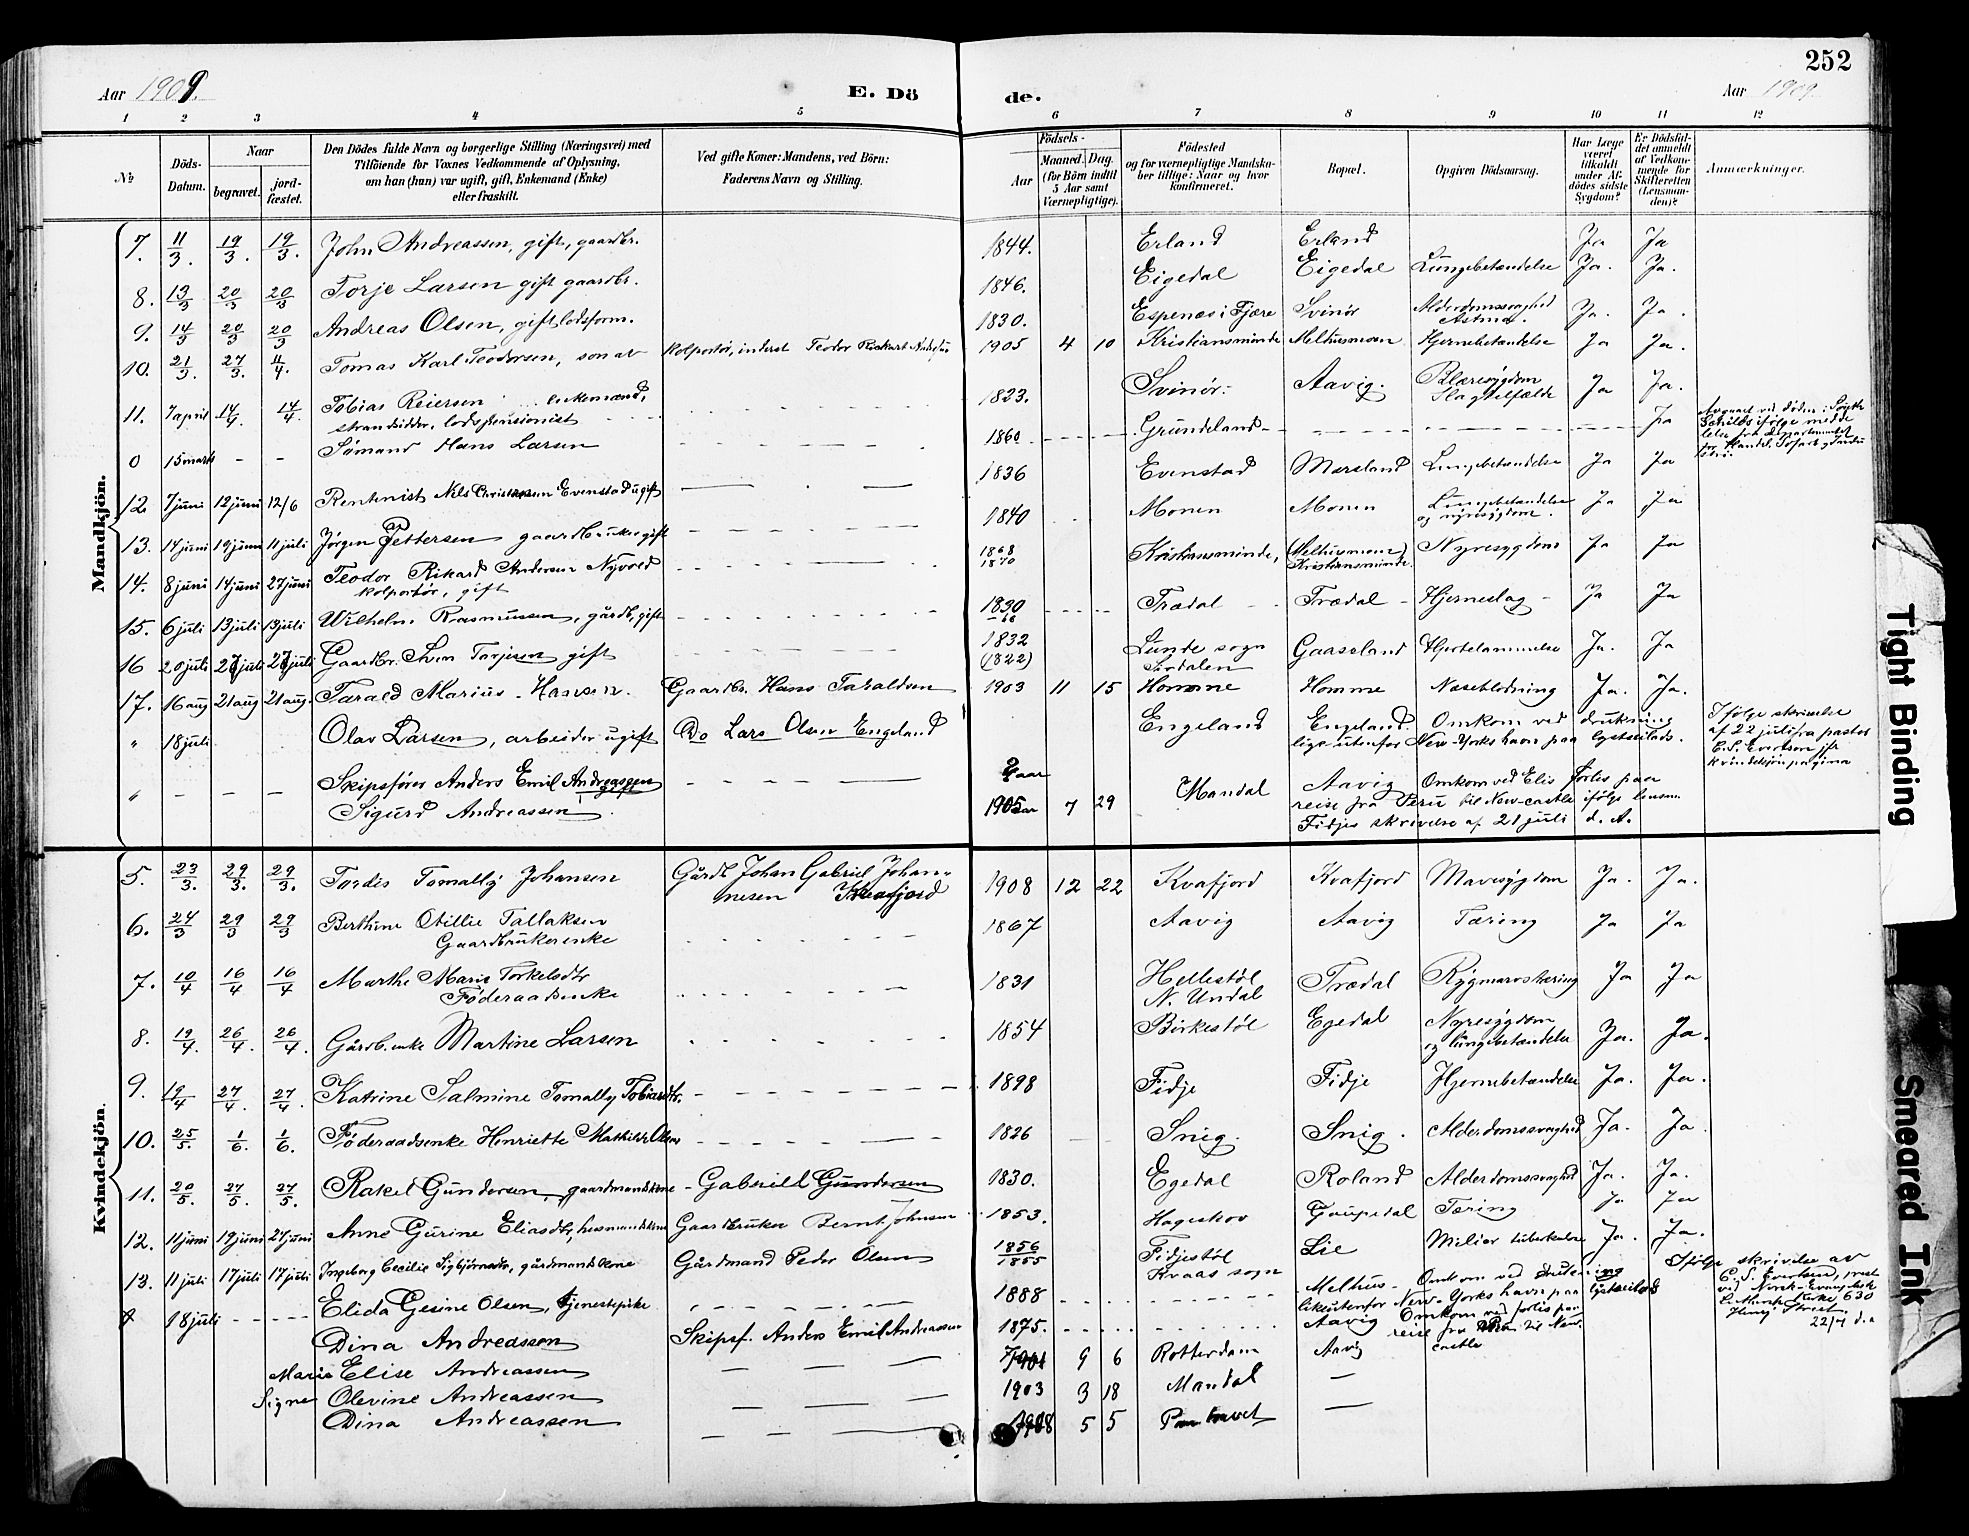 252
Aar 1909. E. Dö de. Aar 1909.
1 2 3 4 5 6 7 8 9 10 11 12
№
Döds-Datum.
Naar
begravet. jord-fæstet.
Den Dödes fulde Navn og borgerlige Stilling (Næringsvei) med
Tilföiende for Voxnes Vedkommende af Oplysning,
om han (hun) var ugift, gift, Enkemand (Enke)
eller fraskilt.
Ved gifte Koner: Mandens, ved Börn:
Faderens Navn og Stilling.
Födsels-
Aar Maaned. Dag.
(for Börn indtil
5 Aar samt
Værnepligtige).
Födested
og for værnepligtige Mandska-
ber tillige: Naar og hvor
konfirmeret.
Bopæl.
Opgiven Dödsaarsag.
Har Læge
været
tilkaldt
under Af-
dödes sidste
Sygdom?
Er Dödsfal-
det anmeldt
af Vedkom-
mende for
Skifteretten
(Lensman-
den)?
Anmærkninger.
Mandkjön.
7. 11/3 19/3. 19/3. John Andreassen, gift, gaardbr. 1844. Erland Erland Ja Ja
8. 13/3 20/3 20/3 Torje Larsen gift gaardbr. 1846. Eigedal Eigedal Lungebetændelse Ja. Ja.
9. 14/3 20/3 20/3 Andreas Olsen, gift lodsform. 1830. Espenæs i Fjære Svinör Alderdomssvaghed Astma. Ja. Ja.
10. 21/3. 27/3. 11/4. Tomas Karl Teodorsen, søn av kolportör, inderst Teodor Rickart 1905 4 10 Kristiansminde Melhusmoen Hjernebetændelse Ja Ja.
11. 7 april 14/4. 14/4. Tobias Reiersen enkemand, 1823. Svinör Aavig. Blæresygdom Slagtilfælde Ja Ja.
strandsidder, lodspensionist
0 15 marts - - Sømand Hans Larsen 1860 Grundeland Ja
12 7 juni 12 juni 12/6 Rentenist Nils Christensen Evenstad ugift 1836 Evenstad Marsland Lungebetændelse Ja Ja
13. 14 juni 19 juni 11 juli Jørgen Pettersen gaardbruker gift 1840 Monen Monen Lungebetændelse og nyresygdom. Ja Ja
14. 8 juni 14 juni 27 juni Teodor Rikard Andersen Nyvold 1868 1870 Kristiansminde, (Melhusmoen) Kristiansminde. Nyresygdom Ja Ja
kolportör, gift
15. 6 juli 13 juli 13 juli Wilhelm Rasmussen, gårdb, gift 1830 Trædal Trædal Hjerneslag Ja Ja
16 20 juli 27 juli 27 juli Gaardbr. Sven Torjesen gift 1832 (1822) Lunde sogn Sirdalen Gaaseland Hjertelammelse Ja. Ja
17. 16 aug 21 aug 21 aug. Tarald Marius Hansen. Gaardbr. Hans Taraldsen 1903 11 15 Homme Homme Næseblødning Ja. Ja.
" 18 juli Olav Larsen, arbeider ugift Do Lars Olsen Engeland Engeland Engeland. Omkom ved drukning
like utenfor New-Yorks havn paa lystseilads.
Ifølge skrivelse
af 22 juli fra pastor
C. S. Everson jfr
kvindekjön pagina
" - - - Skipsfører Anders Emil Andreassen Mandal Aavig Omkom ved Elis forlis paa
Sigurd Andreassen 1905 7 29 reise fra Peru til New-castle ifølge lensm.
Fidjes skrivelse af 21 juli d. A.
Kvindekjön.
5. 23/3. 29/3. 29/3. Tordis Tomally Johansen Gårdb Johan Gabriel Johan-
nesen Kvafjord 1908 12 22 Kvafjord Kvafjord Mavesygdom Ja. Ja.
6. 24/3 29/3 29/3 Berthine Otillie Tallaksen 1867 Aavig Aavig Tæring Ja Ja
Gaardbrukerenke
7. 10/4 16/4 16/4 Marthe Marie Torkelsdtr 1831 Hellestöl N. Undal Trædal Rygmarvstæring Ja Ja
Föderaadsenke
8. 19/4. 26/4. 26/4. Gårdb.enke Martine Larsen 1854 Birkestöl Egedal Nyresygdom og lungebetændelse Ja. Ja.
9. 19/4 27/4. 27/4. Katrine Salmine Tomally Tobiasdtr. 1898 Fidje Fidje Hjernebetændelse Ja. Ja.
10. 25/5. 1/6. 1/6. Föderaadsenke Henriette Mathilde Olsen 1826 Snig. Snig. Alderdomssvaghed Ja. Ja.
11. 20/5. 27/5. 27/5. Rakel Gundersen, gaardmandskone Gabriel Gundersen 1830. Egedal Roland Alderdomssvaghed Ja. Ja.
12. 11 juni 19 juni 27 juni Anne Gurine Eliasdtr, husmandskone Gaardbruker Bernt Johnsen 1853. Hageskov Goupedal Tæring Ja Ja
13. 11 juli 17 juli 17 juli Ingeborg Cecilie Sigbjörnsdtr, gårdmandskone Gårdmand Peder Olsen 1856 1855 Fidjestöl Kvaas sogn Lie Miliær tuberkulose Ja. Ja.
18 juli Elida Gesine Olsen, tjenestepike 1888 Melhus Omkom ved drukning
like utenfor New-Yorks havn paa lystseilads
Ifølge skrivelse av
C. S. Everson, prest
ved Norsk-Evangelisk
Luthersk kirke 630
Henry Street
22/7 d. a
Dina Andreassen Skipsf. Anders Emil Andreassen 1875. Aavig Omkom ved forlis paa
reise fra Peru til New-
castle
Marie Elise Andreassen 1901 9 6 Rotterdam Aavig
Signe Olevine Andreassen 1903 3 18 Mandal
Dina Andreassen 1908 5 5 Paa havet
Tight Binding
Smeared Ink